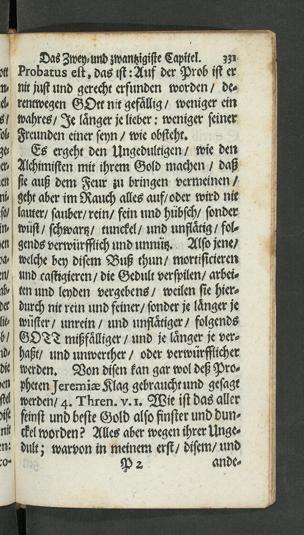 Das Zwey- und zwantzigiste Capitel. 331
Probatus est, das ist: Auf der Prob ist er
nit just und gerecht erfunden worden / de-
rentwegen GOtt nit gefällig / weniger ein
wahres / Je länger je lieber: weniger seiner
Freunden einer seyn / wie obsteht.
Es ergeht den Ungedultigen / wie den
Alchimisten mit ihrem Gold machen / daß
sie auß dem Feur zu bringen vermeinen /
geht aber im Rauch alles auf / oder wird nit
lauter / sauber / rein / fein und hübsch / sonder
wüst / schwartz / tunckel / und unflätig / fol-
gends verwürfflich und unnütz. Also jene /
welche bey disem Buß thun / mortificieren
und castigieren / die Gedult verspilen / arbei-
ten und leyden vergebens / weilen sie hier-
durch nit rein und feiner / sonder je länger je
wüster / unrein / und unflätiger / folgends
GOTT mißfälliger / und je länger je ver-
haßt / und unwerther / oder verwürfflicher
werden. Von disen kan gar wol deß Pro-
pheten Jeremiæ Klag gebraucht und gesagt
werden / 4. Thren. v. 1. Wie ist das aller
feinst und beste Gold also finster und dun-
ckel worden? Alles aber wegen ihrer Unge-
dult; warvon in meinem erst / disem / und
P 2 ande-